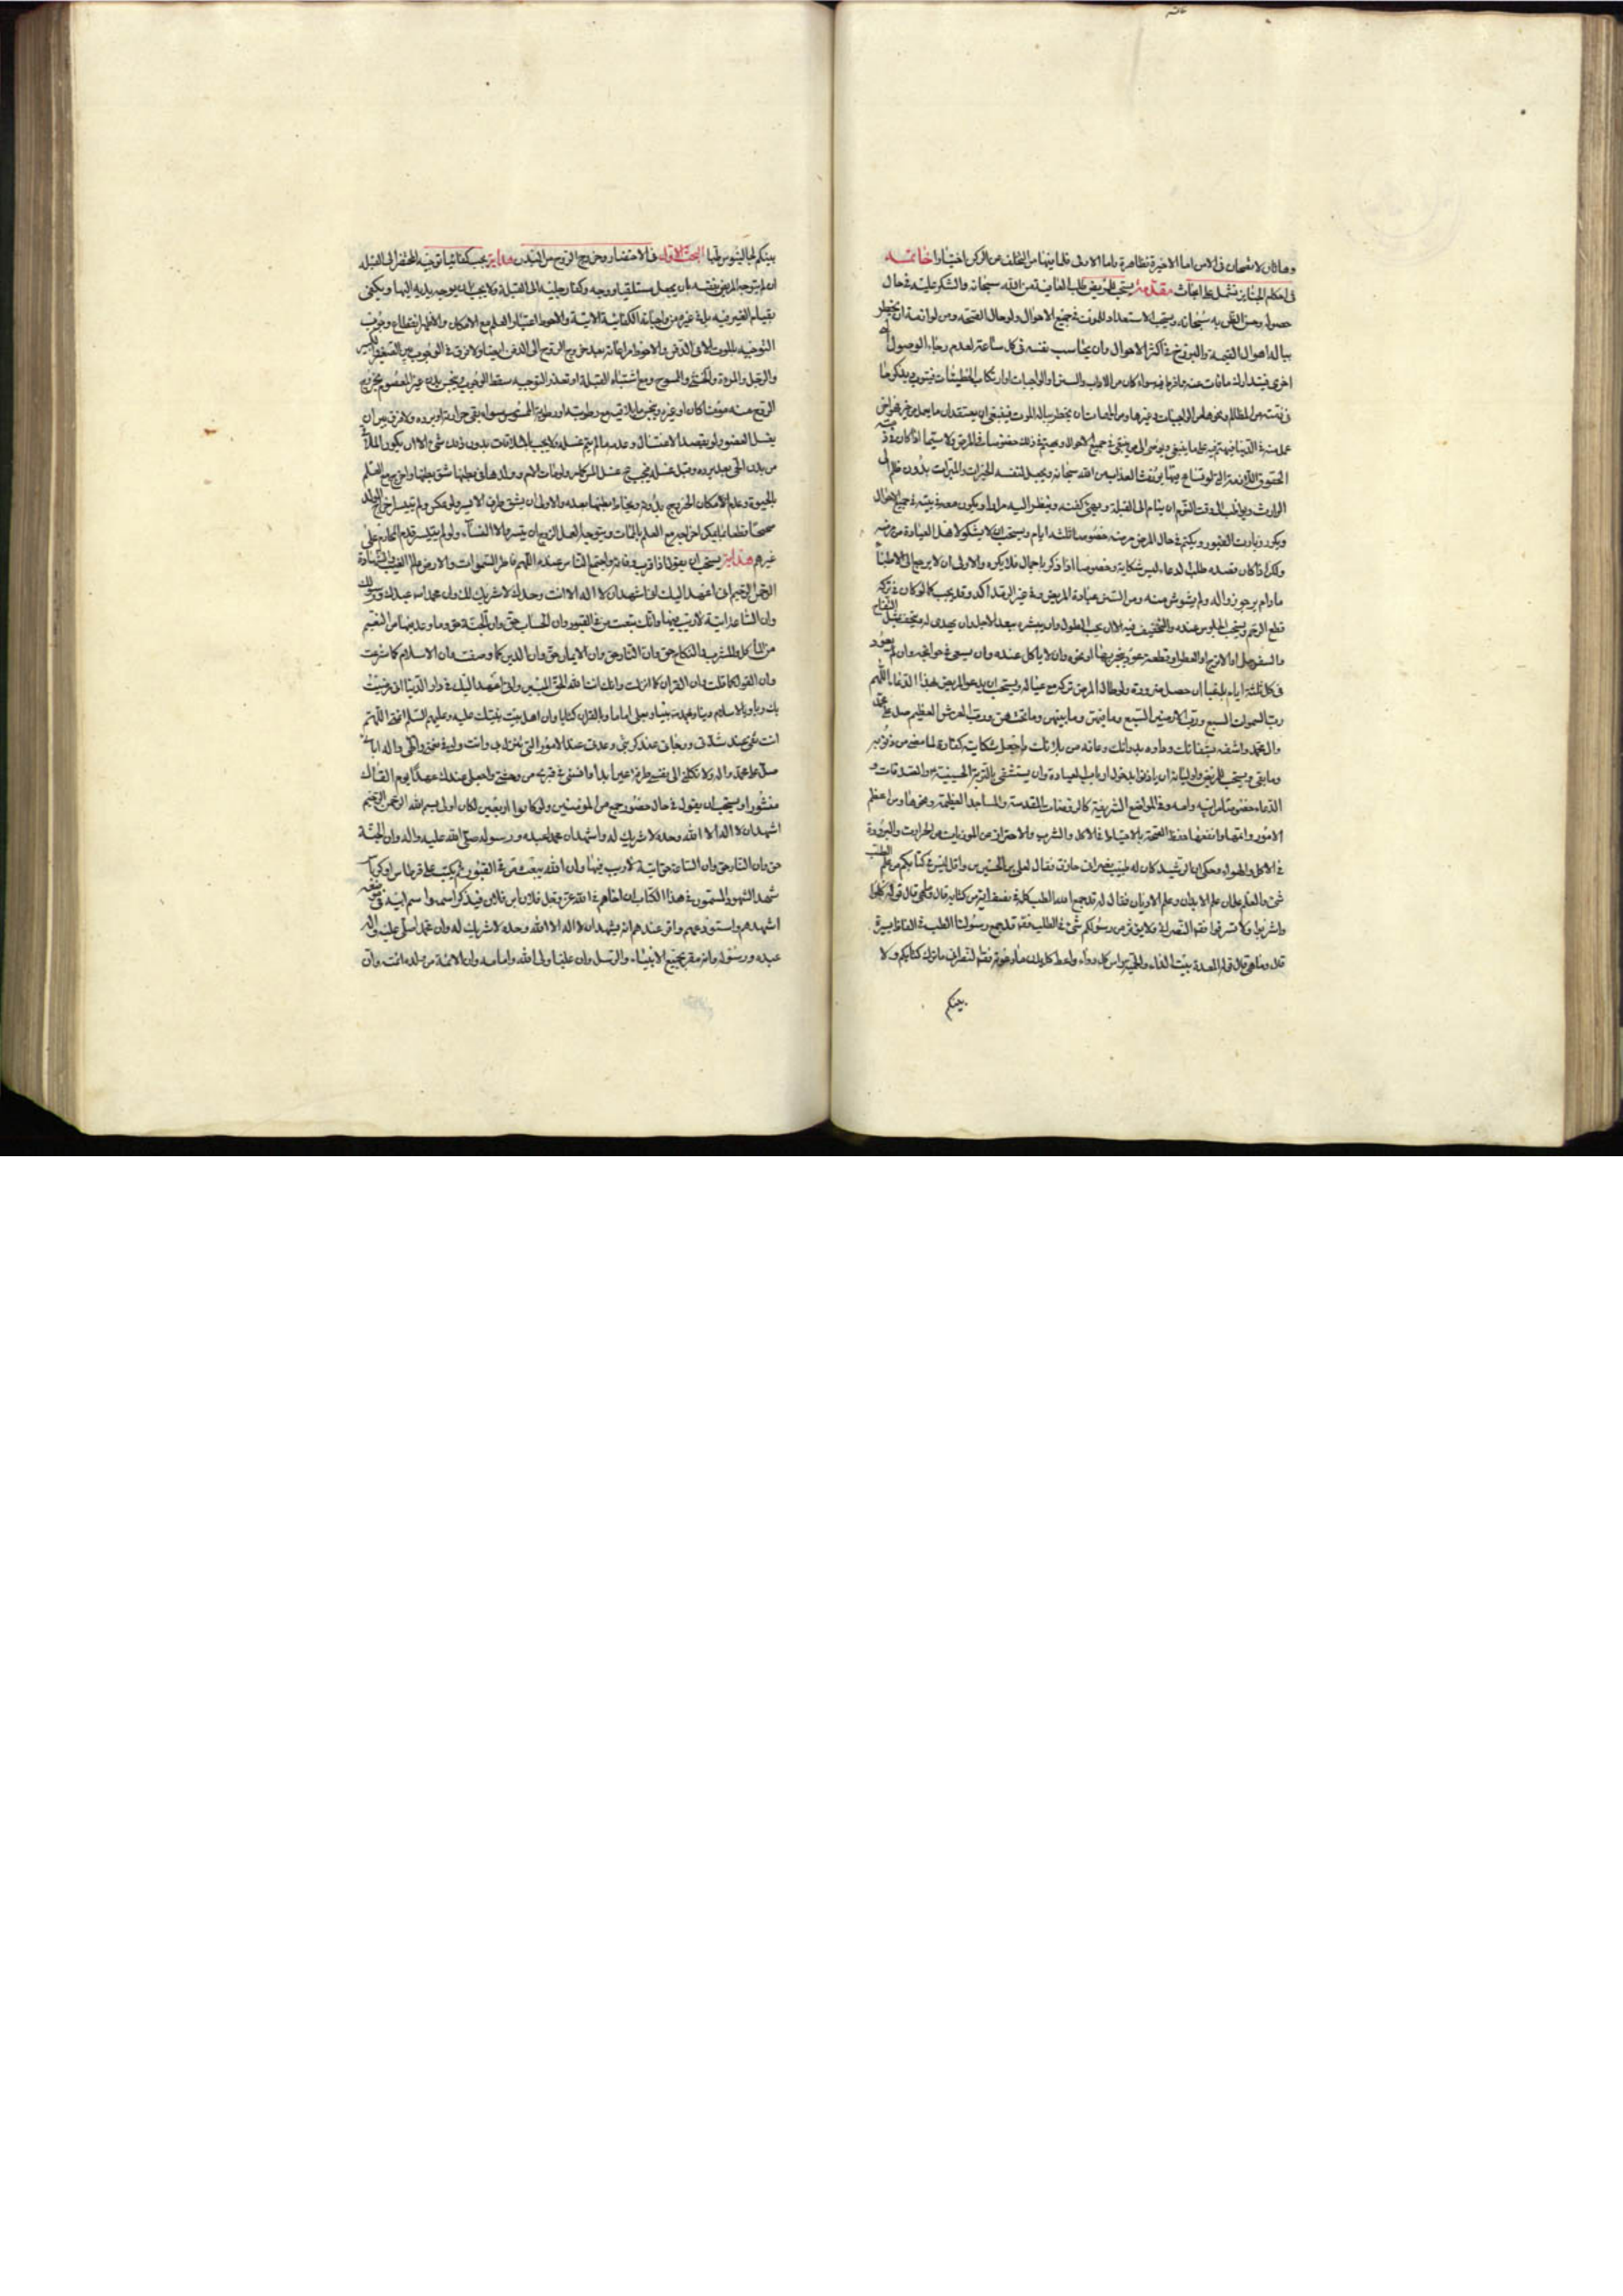 وهاتان لا تصحان في الامن اما الاخيرة فظاهرة واما الاولى فلما فيها من التخلف عن الركن اختيارا خاتمه
في احكام الجنايز تشتمل على ابحاث مقدمة يستحب للمريض طلب العافية من الله سبحانه والشكر عليه في حال
حصوله وحسن الظن به سبحانه ويستحب الاستعداد للموت في جميع الاحوال ولو حال الصحة ومن لوازمه ان يخطر
بباله اهوال القيمة والبرزخ في اكثر الاحوال وان يحاسب نفسه في كل ساعة لعدم رجاء الوصول الى
اخرى فيتدارك ما فات عنه سواء كان من الاداب والسنن او الواجبات او ارتكاب الخطيئات فيتوب
في ذمته من المظالم ونحوها من الواجبات وغيرها ان يخطر بباله الموت فينبغي ان يعتقد ان
عملت في الدنيا في جميع الاحوال خصوصا في المرض ولا سيما اذا كان في ذمته
الحقوق من الله سبحانه ويجعل لنفسه الخيرات والمبرات بدون
الوارث وقت النوم ان ينام الى القبلة ويهيئ كفنه وينظر اليه مرارا ويكون معه في بيته في جميع الاحوال
ويكرر زيارة القبور ويكتم في حال المرض مرضه خصوصا ثلثة ايام ويستحب ان لا يشكو لاهل العيادة من مرضه
ولكن اذا كان قصده طلب الدعاء ليس شكاية وخصوصا اذا ذكر باجمال فلا يكره والاولى ان لا يرجع الى الاطباء
ما دام يرجو زواله ولم يشوش منه ومن السنن عيادة المريض وقد يجب كما لو كان في تركه
قطع الرحم ويستحب الجلوس عنده والتخفيف فيه الا ان يحب الطول وان يبشره بعد الاجل وان يهدى له بتحفة مثل التفاح
والسفرجل او الاترج او العطر او قطعة عود يتبخر بها او نحوه وان لا ياكل عنده وان يسعى في حوائجه وان لم يعود
في كل ثلثة ايام ان حصل ضرورة ولو طال المرض ترك مع عياله ويستحب ان يدعو للمريض هذا الدعاء اللهم
رب السموات السبع ورب الارضين السبع وما فيهن وما بينهن وما تحتهن ورب العرش العظيم صل على محمد
وال محمد واشفه بشفائك وداوه بدوائك وعافه من بلائك واجعل شكايته كفارة لما مضى من ذنوبه
وما بقي ويستحب للمريض ان ياذنوا بدخول ارباب العيادة وان يستشفى بالتربة الحسينية والصدقات و
الدعاء خصوصا من ابيه وامه وفي المواضع الشريفة كالروضات المقدسة والمساجد العظيمة ونحوها ومن اعظم
الامور وانفعها حفظ الصحة بالاحتياط في الاكل والشرب والاحتراز عن الموذيات من الحرارة والبرودة
في الاكل والهواء وحكى ان الرشيد كان له طبيب نصراني حاذق فقال لعلي بن الحسين بن واقد ليس في كتابكم من علم الطب
شئ والعلم علمان علم الابدان وعلم الاديان فقال له قد جمع الله الطب كله في نصف اية من كتابه قال وما هي قال قوله كلوا
واشربوا ولا تسرفوا فقال النصراني ولا يؤثر من رسولكم شئ في الطب فقال قد جمع رسولنا الطب في الفاظ يسيرة
قال وما هي قال قوله المعدة بيت الداء والحمية راس كل دواء واعط كل بدن ما عودته فقال النصراني ما ترك كتابكم ولا
بينكم
بينكم لجالينوس طبا البحث الاول في الاحتضار وخروج الروح من البدن هداية يجب كفائيا توجيه المحتضر الى القبلة
ان لم يتوجه المريض بنفسه بان يجعل مستلقيا ووجهه وكفا رجليه الى القبلة ولا يجب ان يوجه يديه اليها ويكفي
بقيام الغير فيه الكفائية الاتية والاحوط اعتبار العلم مع الامكان والاظهر انقطاع وجوب
التوجيه بالموت لا في الدفن والاحوط مراعاته بعد خروج الروح الى الدفن ايضا ولا فرق في الوجوب بين الصغير والكبير
والرجل والمرءة والخنثى والممسوح ومع اشتباه القبلة او تعذر التوجيه سقط الوجوب وينجس بدن غير المعصوم بخروج
الروح منه مؤمنا كان او غيره وينجس ما يلاقيه مع رطوبته او رطوبة الممسوس سواء بقي حرارته او برده ولا فرق بين ان
يغسل العضو ولو بقصد الاغتسال وعدمه ما لم يتم غسله ولا يجب بدون ذلك شئ الا ان يكون الملاقي
من بدن الحي بعد برده وقبل غسله فيجب غسل المس كاملا ولو مات الام وولدها في بطنها شق بطنها واخرج مع العلم
بالحيوة وعدم الامكان الخروج بدونه ويخاط بطنها بعده والاولى ان يشق طرف الايسر ولو عكس ولم يتيسر اخراج الولد
صحيحا قطعا يمكن اخراجه مع العلم بالممات ويتوجه لعمل الزوج ان تيسر والا النساء ولو لم يتيسر قدم المحارم على
غيرهم هداية يستحب ان يقول اذا قرب وفاته واجتمع الناس عنده اللهم فاطر السموات والارض عالم الغيب والشهادة
الرحمن الرحيم اني اعهد اليك اني اشهد ان لا اله الا انت وحدك لا شريك لك وان محمدا عبدك ورسولك
وان الساعة اتية لا ريب فيها وانك تبعث من في القبور وان الحساب حق وان الجنة حق وما وعد فيها من النعيم
من الماكل والمشرب والنكاح حق وان النار حق وان الايمان حق وان الدين كما وصفت وان الاسلام كما شرعت
وان القول كما قلت وان القران كما انزلت وانك انت الله الحق المبين واني اعهد اليك في دار الدنيا اني رضيت
بك ربا وبالاسلام دينا وبمحمد نبيا وبعلي اماما وبالقران كتابا وان اهل بيت نبيك عليه وعليهم السلم ائمتي اللهم
انت ثقتي عند شدتي ورجائي عند كربتي وعدتي عند الامور التي تنزل بي وانت وليي في نعمتي والهي واله ابائي
صل على محمد واله ولا تكلني الى نفسي طرفة عين ابدا وانس في قبري من وحشتي واجعل لي عندك عهدا يوم القاك
منشورا ويستحب ان يقول في حال حضور جمع من المؤمنين ولو كانوا اربعين لكان اولى بسم الله الرحمن الرحيم
اشهد ان لا اله الا الله وحده لا شريك له واشهد ان محمدا عبده ورسوله صلى الله عليه واله وان الجنة
حق وان النار حق وان الساعة حق اتية لا ريب فيها وان الله يبعث من في القبور ثم يكتب على قرطاس او كرباس
شهد الشهود المسمون في هذا الكتاب ان اخاهم في الله عز وجل فلان ابن فلان فيذكر اسمه واسم ابيه
اشهدهم واستودعهم واقر عندهم انه يشهد ان لا اله الا الله وحده لا شريك له وان محمدا صلى عليه واله
عبده ورسوله وانه مقر بجميع الانبياء والرسل وان عليا ولي الله وامامه وان الائمة من ولده ائمته وان